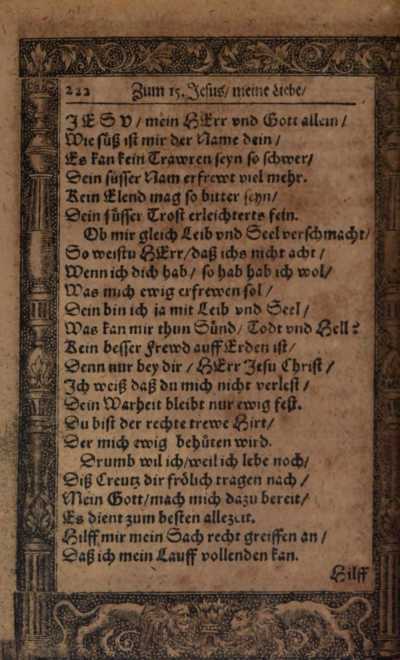 222 Zum 15. Jesus/ meine Liebe/
JESU/ mein HErr vnd Gott allein/
Wie süß ist mir der Name dein/
Es kan kein Trawren seyn so schwer/
Dein süsser Nam erfrewt viel mehr.
Kein Elend mag so bitter seyn/
Dein süsser Trost erleichterts fein.
Ob mir gleich Leib vnd Seel verschmacht/
So weistu HErr/ daß ichs nicht acht/
Wenn ich dich hab/ so hab hab ich wol/
Was mich ewig erfrewen sol/
Dein bin ich ja mit Leib vnd Seel/
Was kan mir thun Sünd/ Todt vnd Hell?
Kein besser Frewd auff Erden ist/
Denn nur bey dir/ HErr Jesu Christ/
Ich weiß daß du mich nicht verlest/
Dein Warheit bleibt nur ewig fest.
Du bist der rechte trewe Hirt/
Der mich ewig behüten wird.
Drumb wil ich/ weil ich lebe noch/
Diß Creutz dir frölich tragen nach/
Mein Gott/ mach mich dazu bereit/
Es dient zum besten allezeit.
Hilff mir mein Sach recht greiffen an/
Daß ich mein Lauff vollenden kan.
Hilff